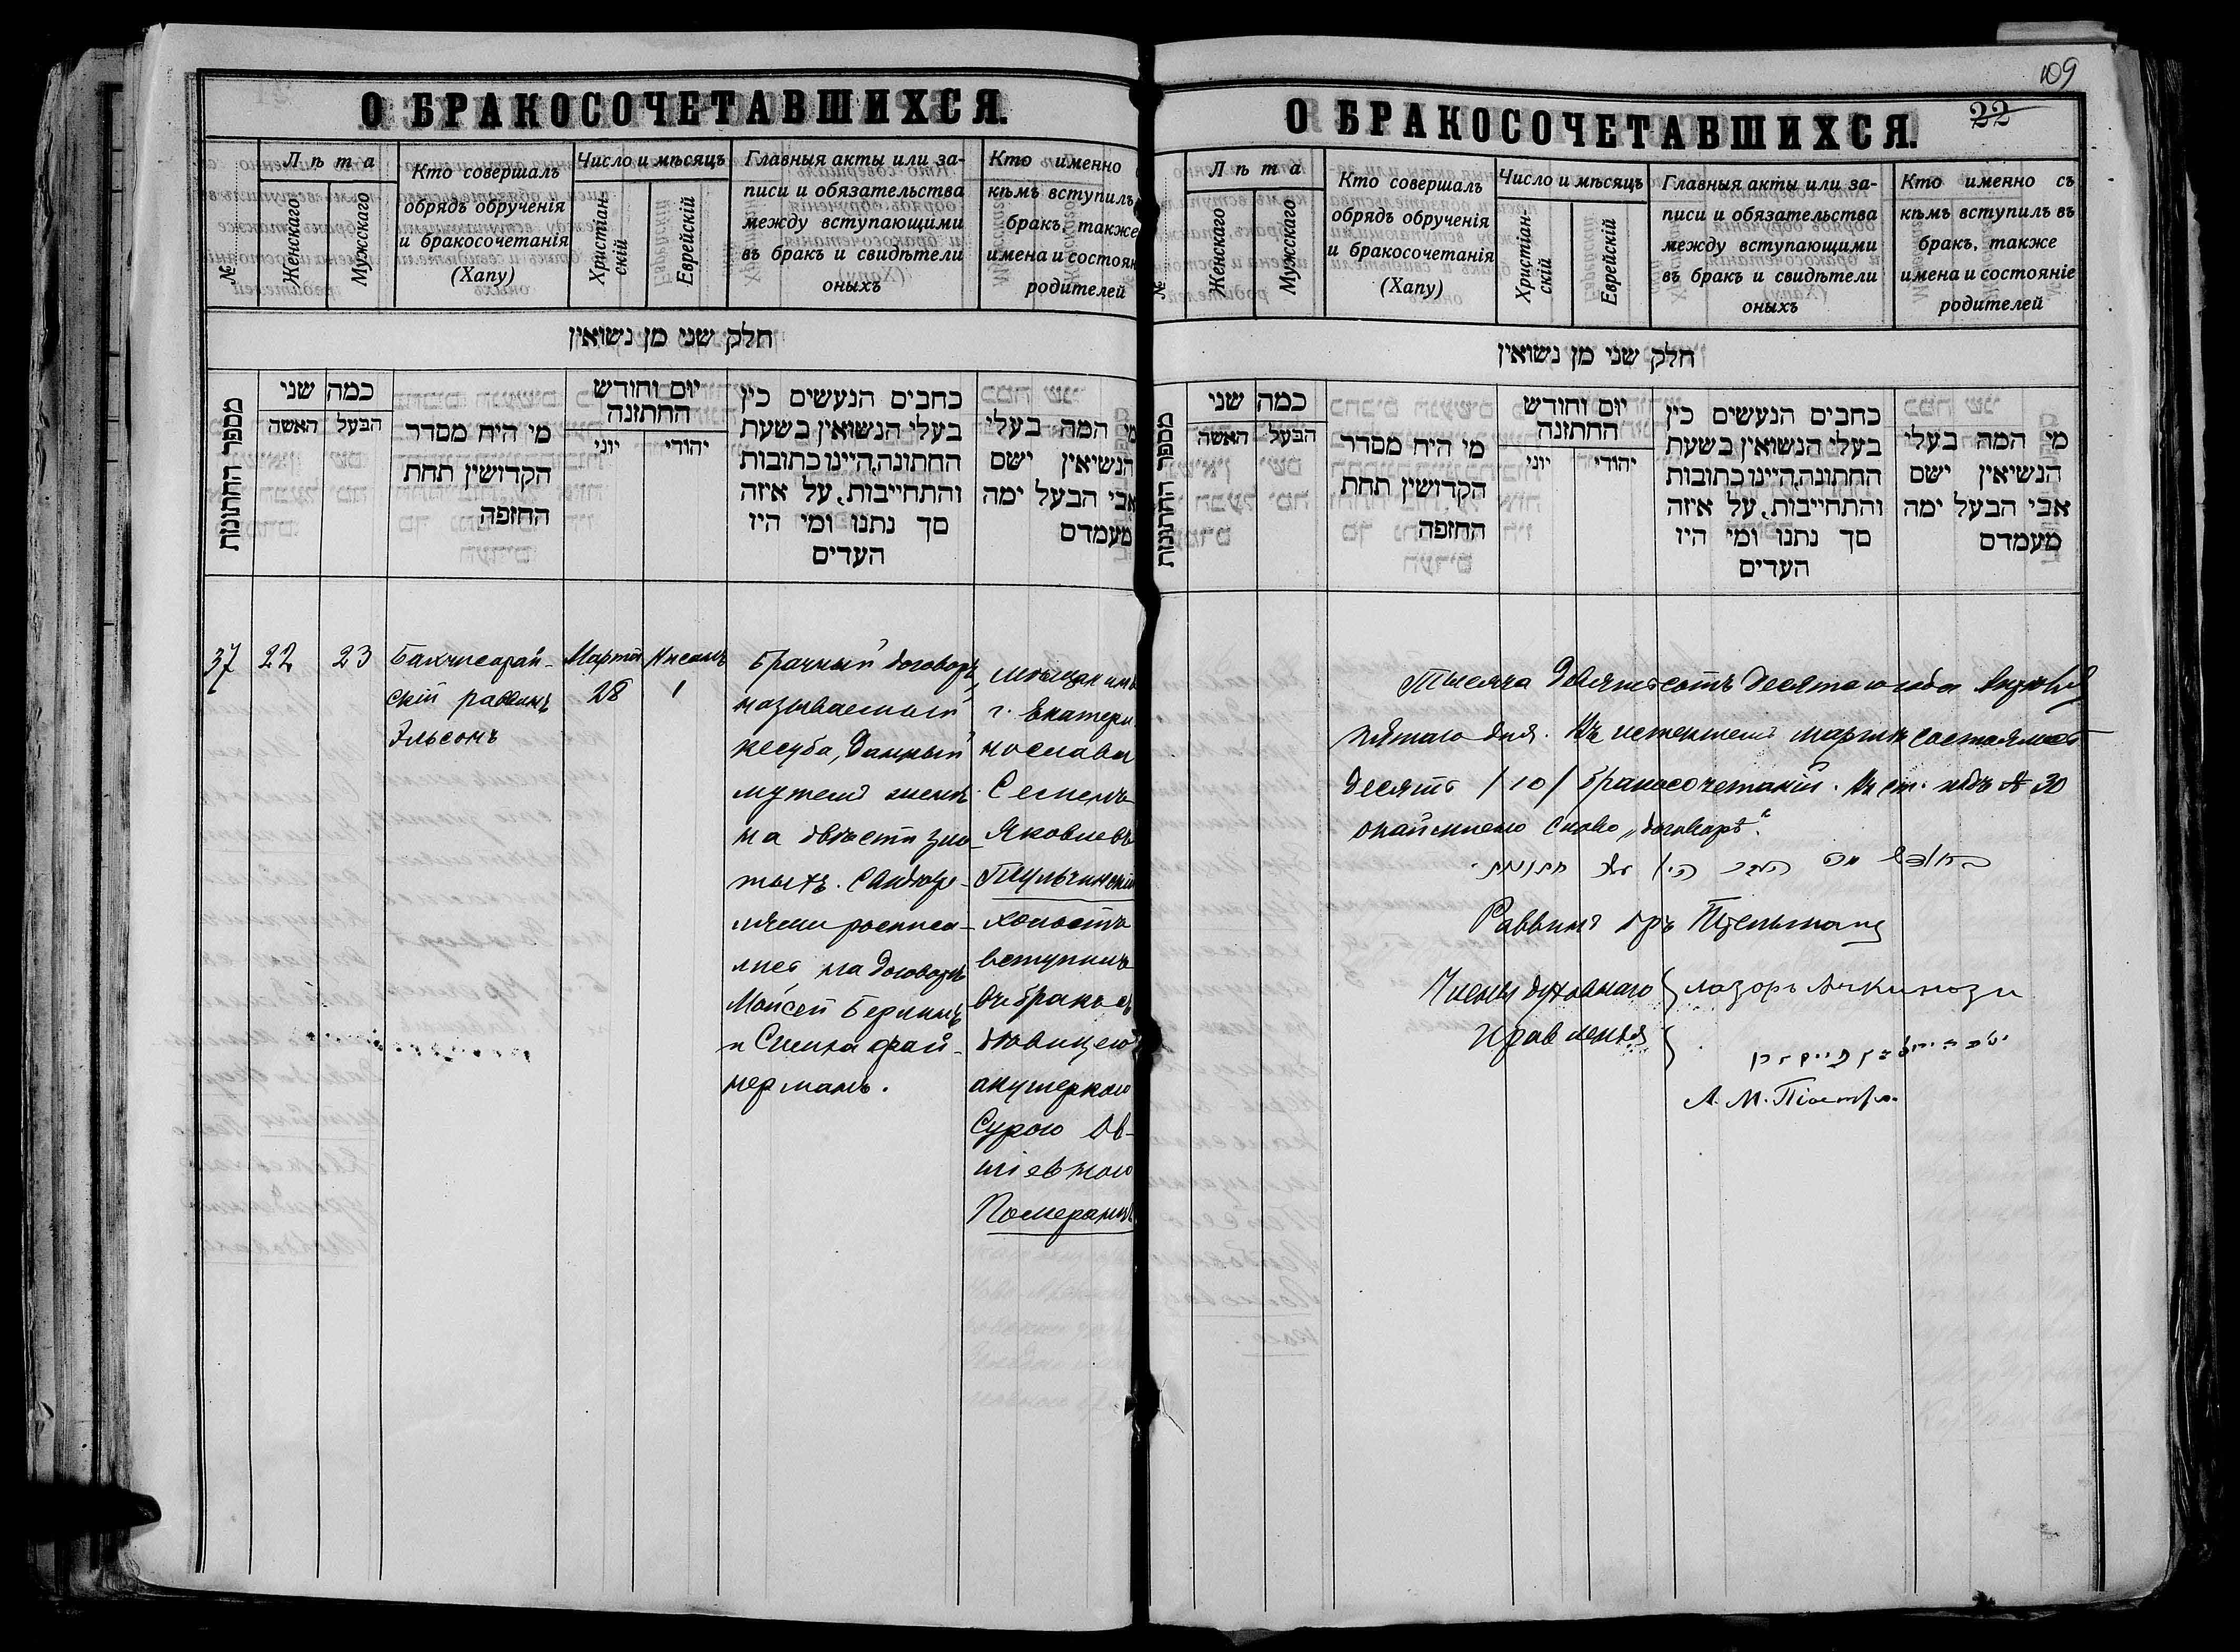 О БРАКОСОЧЕТАВШИХСЯ.
№
Лѣта
Женскаго
Мужскаго
Кто совершалъ
обрядъ обрученія
и бракосочетанія
(Хапу)
Число и мѣсяцъ
Христіан-
скій
Еврейскій
Главныя акты или за-
писи и обязательства
между вступающими
въ бракъ и свидѣтели
оныхъ
Кто именно
кѣмъ вступилъ
бракъ, также
имена и состоян
родителей
חלק שני מן נשואין
מספר החתונות
כמה שני
הבעל האשה
מי היח מסדר
הקדושין תחת
החופה
יום וחודש
החתונה
יהודי יוני
כחבים הנעשים כין
בעלי הנשואין בשעת
החתונה, היינו כתובות
והתחייבות, על איזה
סך נתנו ומי היו
העדים
מי המה בעלי
הנשיאין ישם
אבי הבעל ימה
מעמדם
37
22
23
Бахчисарай-
скій раввинъ
Эльсонъ
Марта
28
Нисанъ
1
Брачный договоръ,
называемый
кесуба, данный
мужемъ женѣ
на двѣсти зло-
тыхъ. Свидѣте-
лями росписа-
лись на договорѣ
Мойсей Берлинъ
и Симха Фай-
нерманъ.
мѣщанинъ
г. Екатери
нослава
Семенъ
Яковлевъ
Тульчинскій
холостъ
вступилъ
въ бракъ съ
дѣвицею
акушеркою
Сурою Ов-
шіевною
Померанцъ
109
О БРАКОСОЧЕТАВШИХСЯ.
22
№
Лѣта
Женскаго
Мужскаго
Кто совершалъ
обрядъ обрученія
и бракосочетанія
(Хапу)
Число и мѣсяцъ
Христіан-
скій
Еврейскій
Главныя акты или за-
писи и обязательства
между вступающими
въ бракъ и свидѣтели
оныхъ
Кто именно съ
кѣмъ вступилъ въ
бракъ, также
имена и состояніе
родителей
חלק שני מן נשואין
מספר החתונות
כמה שני
הבעל האשה
מי היח מסדר
הקדושין תחת
החופה
יום וחודש
החתונה
יהודי יוני
כחבים הנעשים כין
בעלי הנשואין בשעת
החתונה, היינו כתובות
והתחייבות, על איזה
סך נתנו ומי היו
העדים
מי המה בעלי
הנשיאין ישם
אבי הבעל ימה
מעמדם
Тысяча девятьсотъ десятаго года Апрѣля
пятаго дня. Въ истекшемъ мартѣ состоялось
десять /10/ бракосочетаній. Въ ст. подъ № 30
слово „договорѣ“.
Раввинъ
Члены духовнаго
Правленія
Лазорь Ачкинази